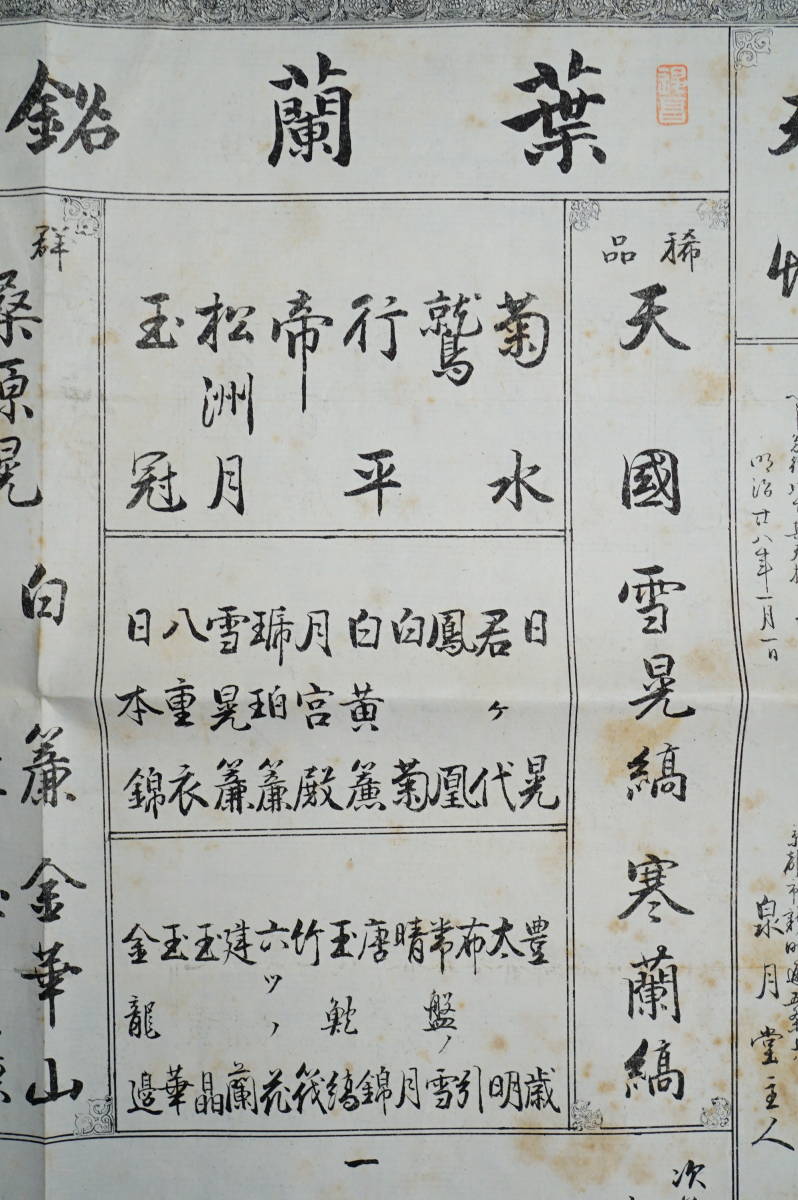 葉蘭銘
稀品
天國
雪晃縞
寒蘭縞
菊水
鷲
行平
帝
松洲月
玉冠
日晃
君ヶ代
鳳凰
白菊
白黄簾
月宮殿
琥珀簾
雪晃簾
八重衣
日本錦
豊歳
太明
布引
常盤ノ雪
晴月
唐錦
玉鉈縞
竹筏
六ツノ花
建蘭
玉晶
玉華
金龍邊
群
白簾
金華山
桑原晃
明治廿八年一月一日
泉月堂主人
一
次